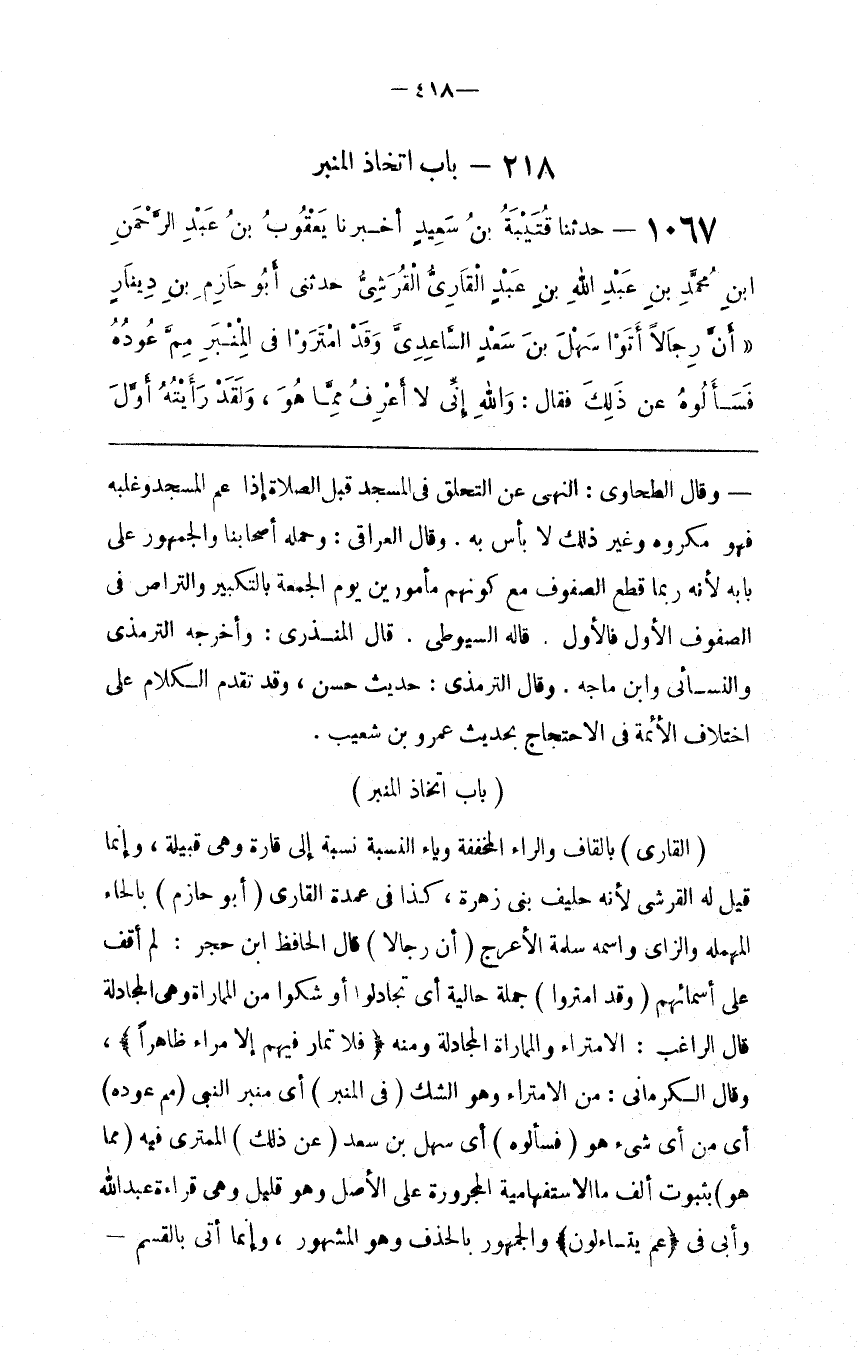 —٤١٨—
٢١٨ — باب اتخاذ المنبر
١٠٦٧ — حدثنا قُتَيْبَةُ بنُ سَعِيدٍ أخبرنا يَعْقُوبُ بنُ عَبْدِ الرَّحْمَنِ
ابنِ مُحمَّدِ بنِ عَبْدِ اللهِ بنِ عَبْدٍ الْقَارِىُّ الْقُرَشِىُّ حدثنى أَبُو حَازِمِ بنِ دِينَارٍ
« أَنَّ رِجَالاً أَتَوْا سَهْلَ بنَ سَعْدٍ السَّاعِدِىَّ وَقَدْ امْتَرَوْا فى الْمِنْبَرِ مِمَّ عُودُهُ
فَسَأَلُوهُ عن ذَلِكَ فقال : وَاللهِ إِنِّى لا أَعْرِفُ مِمَّا هُوَ ، وَلَقَدْ رَأَيْتُهُ أَوَّلَ
— وقال الطحاوى : النهى عن التحلق فى المسجد قبل الصلاة إذا عم المسجد وغلبه
فهو مكروه وغير ذلك لا بأس به . وقال العراقى : وحمله أصحابنا والجمهور على
بابه لأنه ربما قطع الصفوف مع كونهم مأمورين يوم الجمعة بالتكبير والتراص فى
الصفوف الأول فالأول . قاله السيوطى . قال المنذرى : وأخرجه الترمذى
والنسائى وابن ماجه . وقال الترمذى : حديث حسن ، وقد تقدم الكلام على
اختلاف الأئمة فى الاحتجاج بحديث عمرو بن شعيب .
( باب اتخاذ المنبر )
( القارى ) بالقاف والراء المخففة وياء النسبة نسبة إلى قارة وهى قبيلة ، وإنما
قيل له القرشى لأنه حليف بنى زهرة ، كذا فى عمدة القارى ( أبو حازم ) بالحاء
المهمله والزاى واسمه سلمة الأعرج ( أن رجالا ) قال الحافظ ابن حجر : لم أقف
على أسمائهم ( وقد امتروا ) جملة حالية أى تجادلوا أو شكوا من المماراة وهى المجادلة
قال الراغب : الامتراء والمماراة المجادلة ومنه ﴿ فلا تمار فيهم إلا مراء ظاهراً ﴾ ،
وقال الكرمانى : من الامتراء وهو الشك ( فى المنبر ) أى منبر النبى (مم عوده)
أى من أى شىء هو ( فسألوه ) أى سهل بن سعد ( عن ذلك ) الممترى فيه ( مما
هو ) بثبوت ألف ما الاستفهامية المجرورة على الأصل وهو قليل وهى قراءة عبدالله
وأبى فى ﴿عم يتساءلون﴾ والجمهور بالحذف وهو المشهور ، وإنما أتى بالقسم —